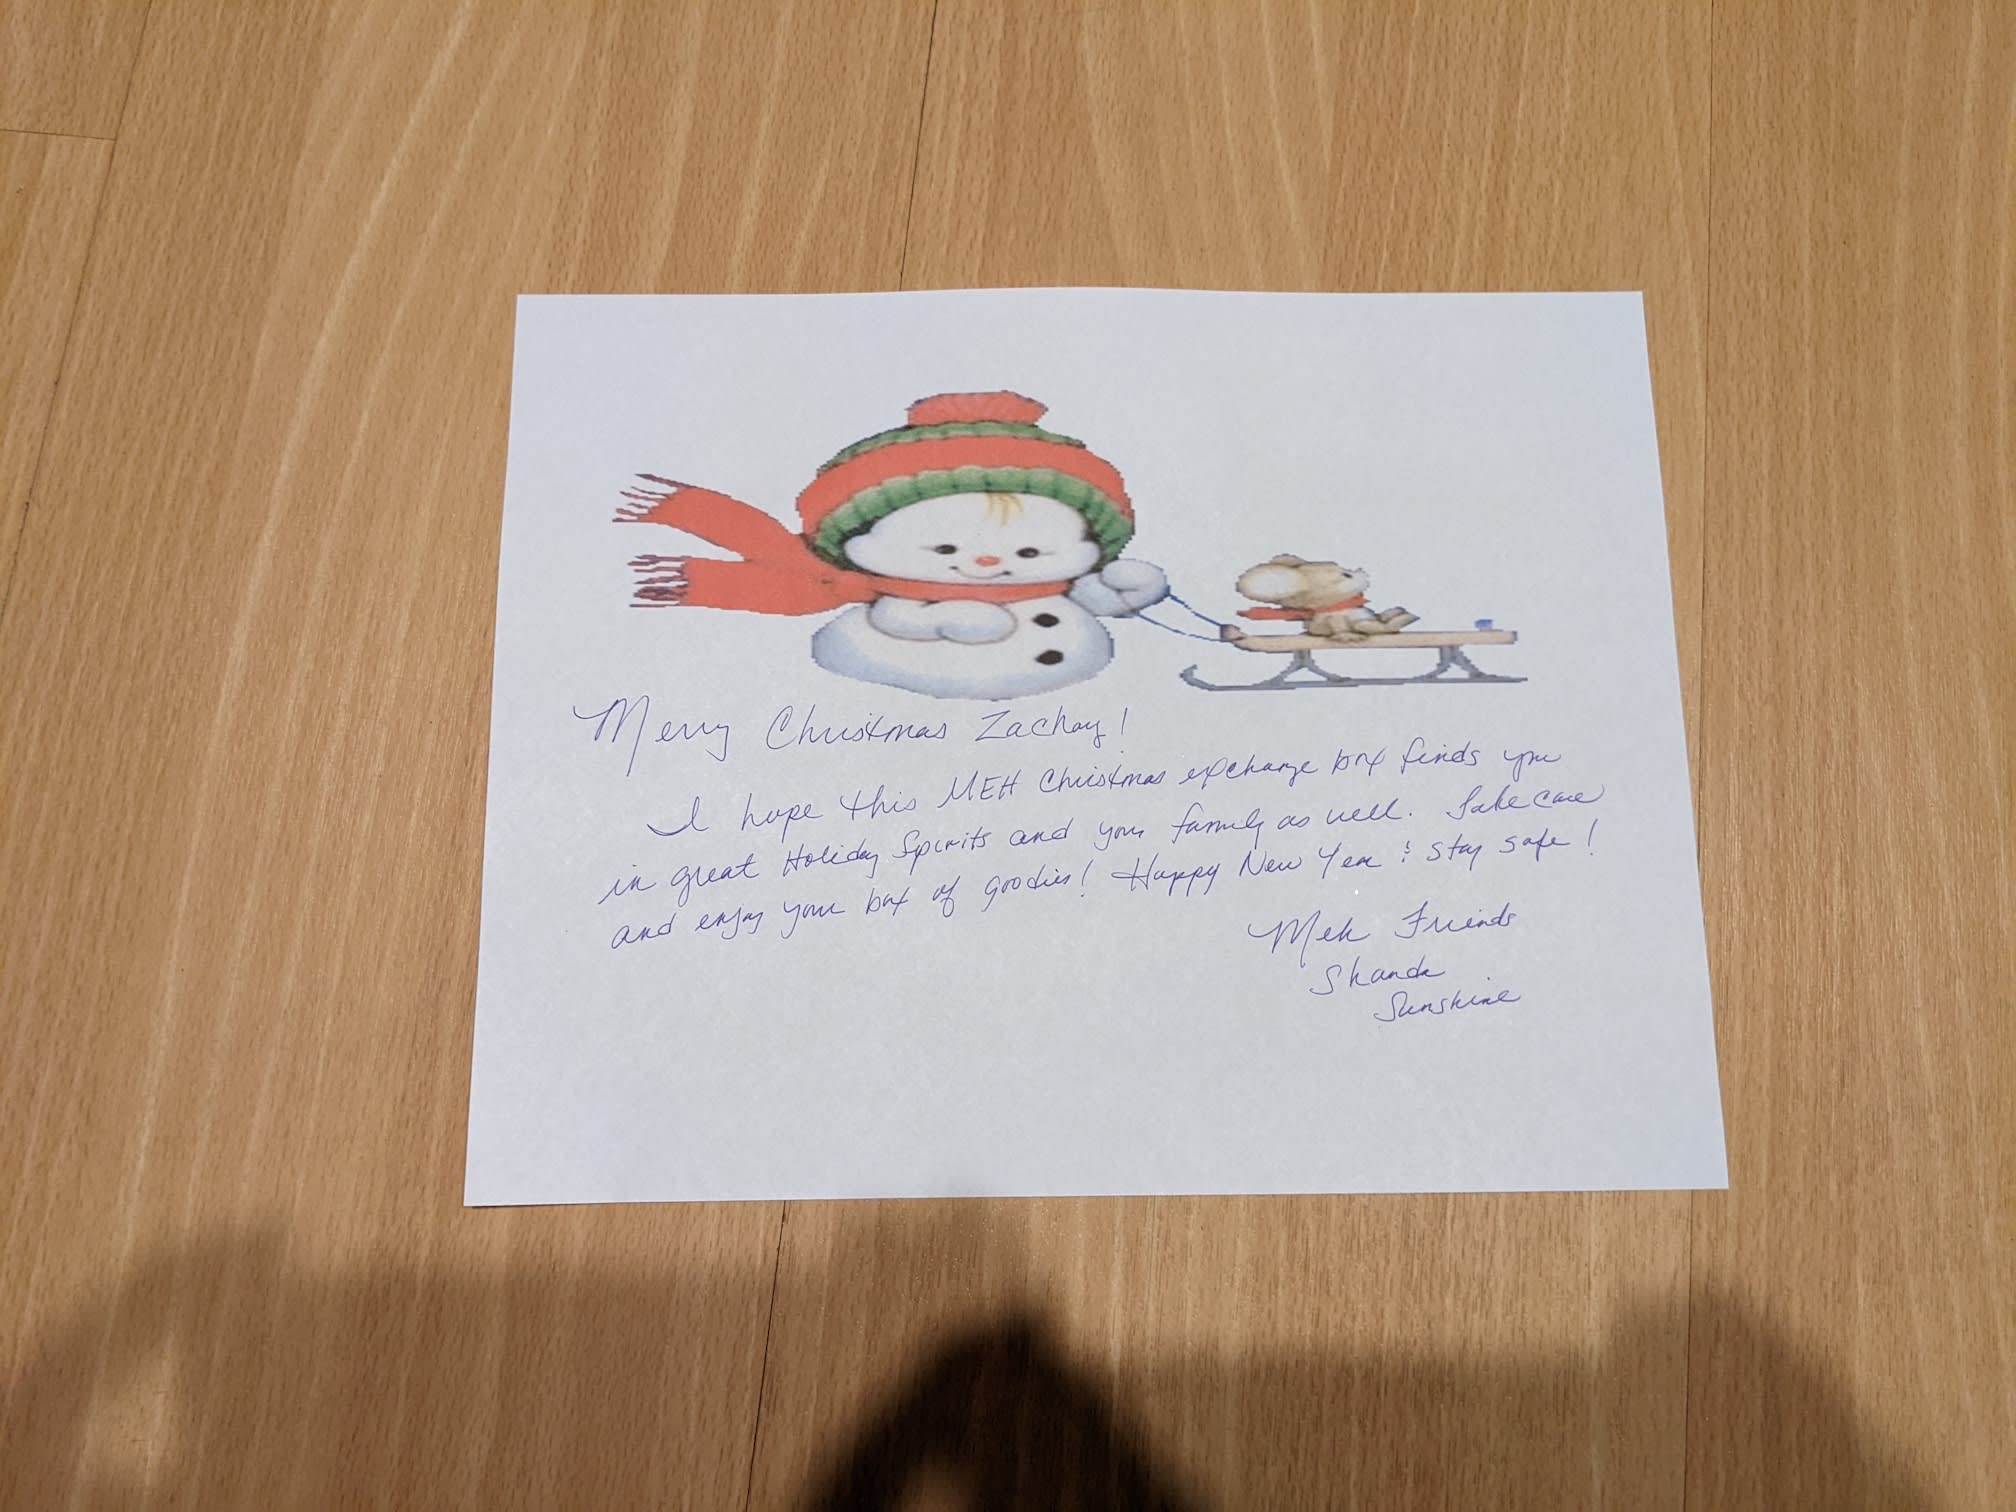 Merry Christmas Zachary!
I hope this MEH Christmas exchange box finds you
in great Holiday Spirits and your family as well. Take care
and enjoy your box of goodies! Happy New Year & stay safe!
Meh Friends
Shanda
Sunshine